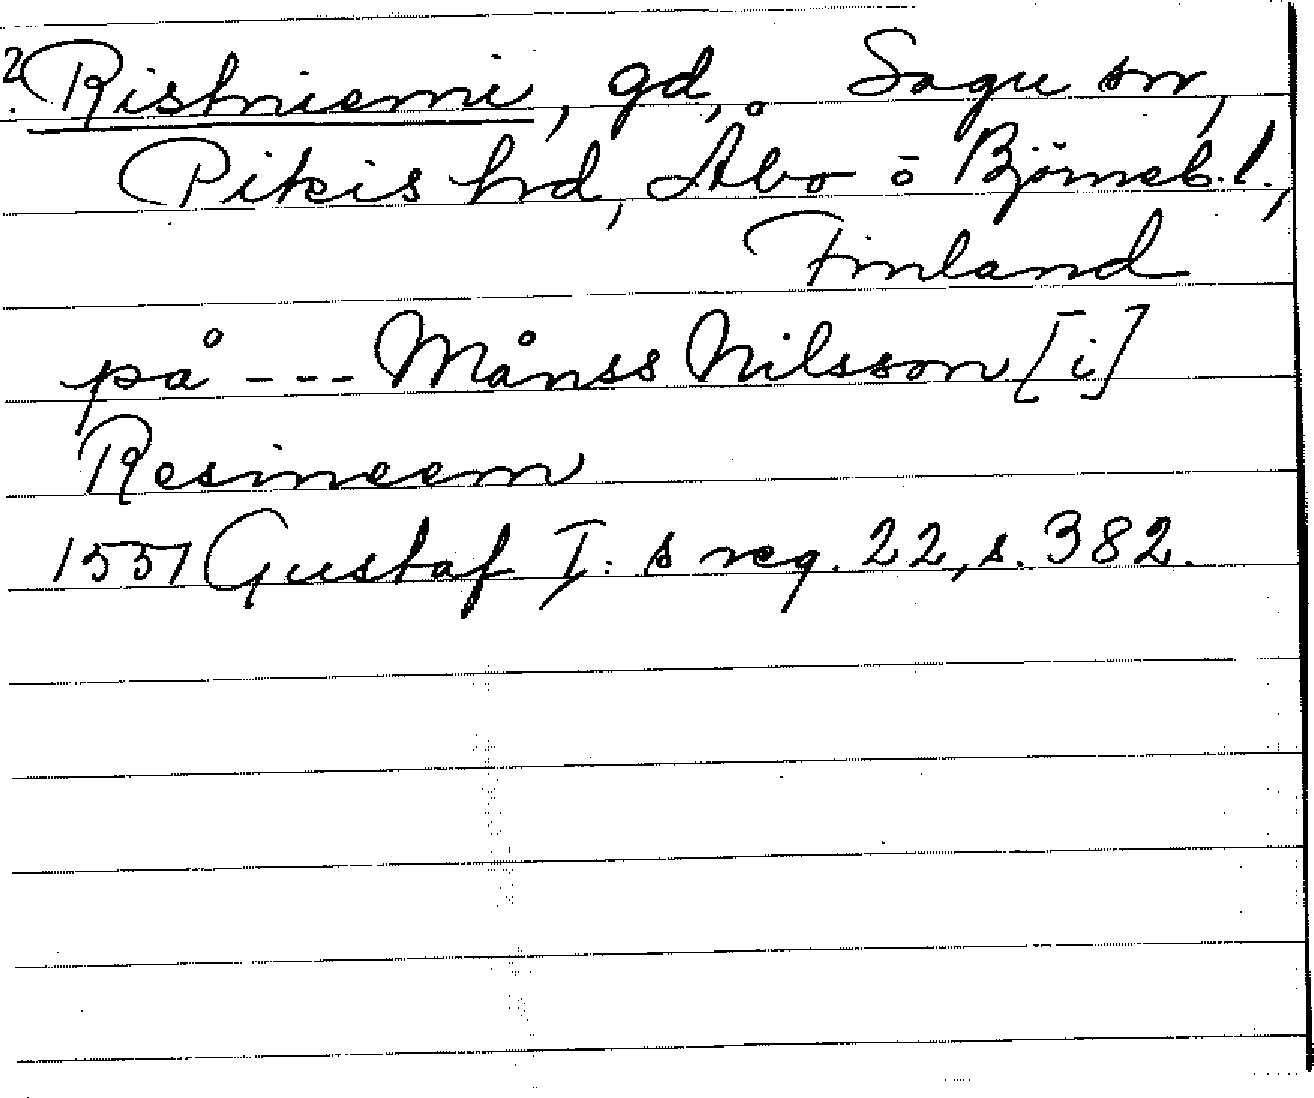 ? Ristniemi, gd, Sagu sn,
Pikis hd, Åbo o Björneb. l.,
Finland
på --- Månss Nilsson [i]
Resineem
1551 Gustaf I: s reg. 22, s. 382.